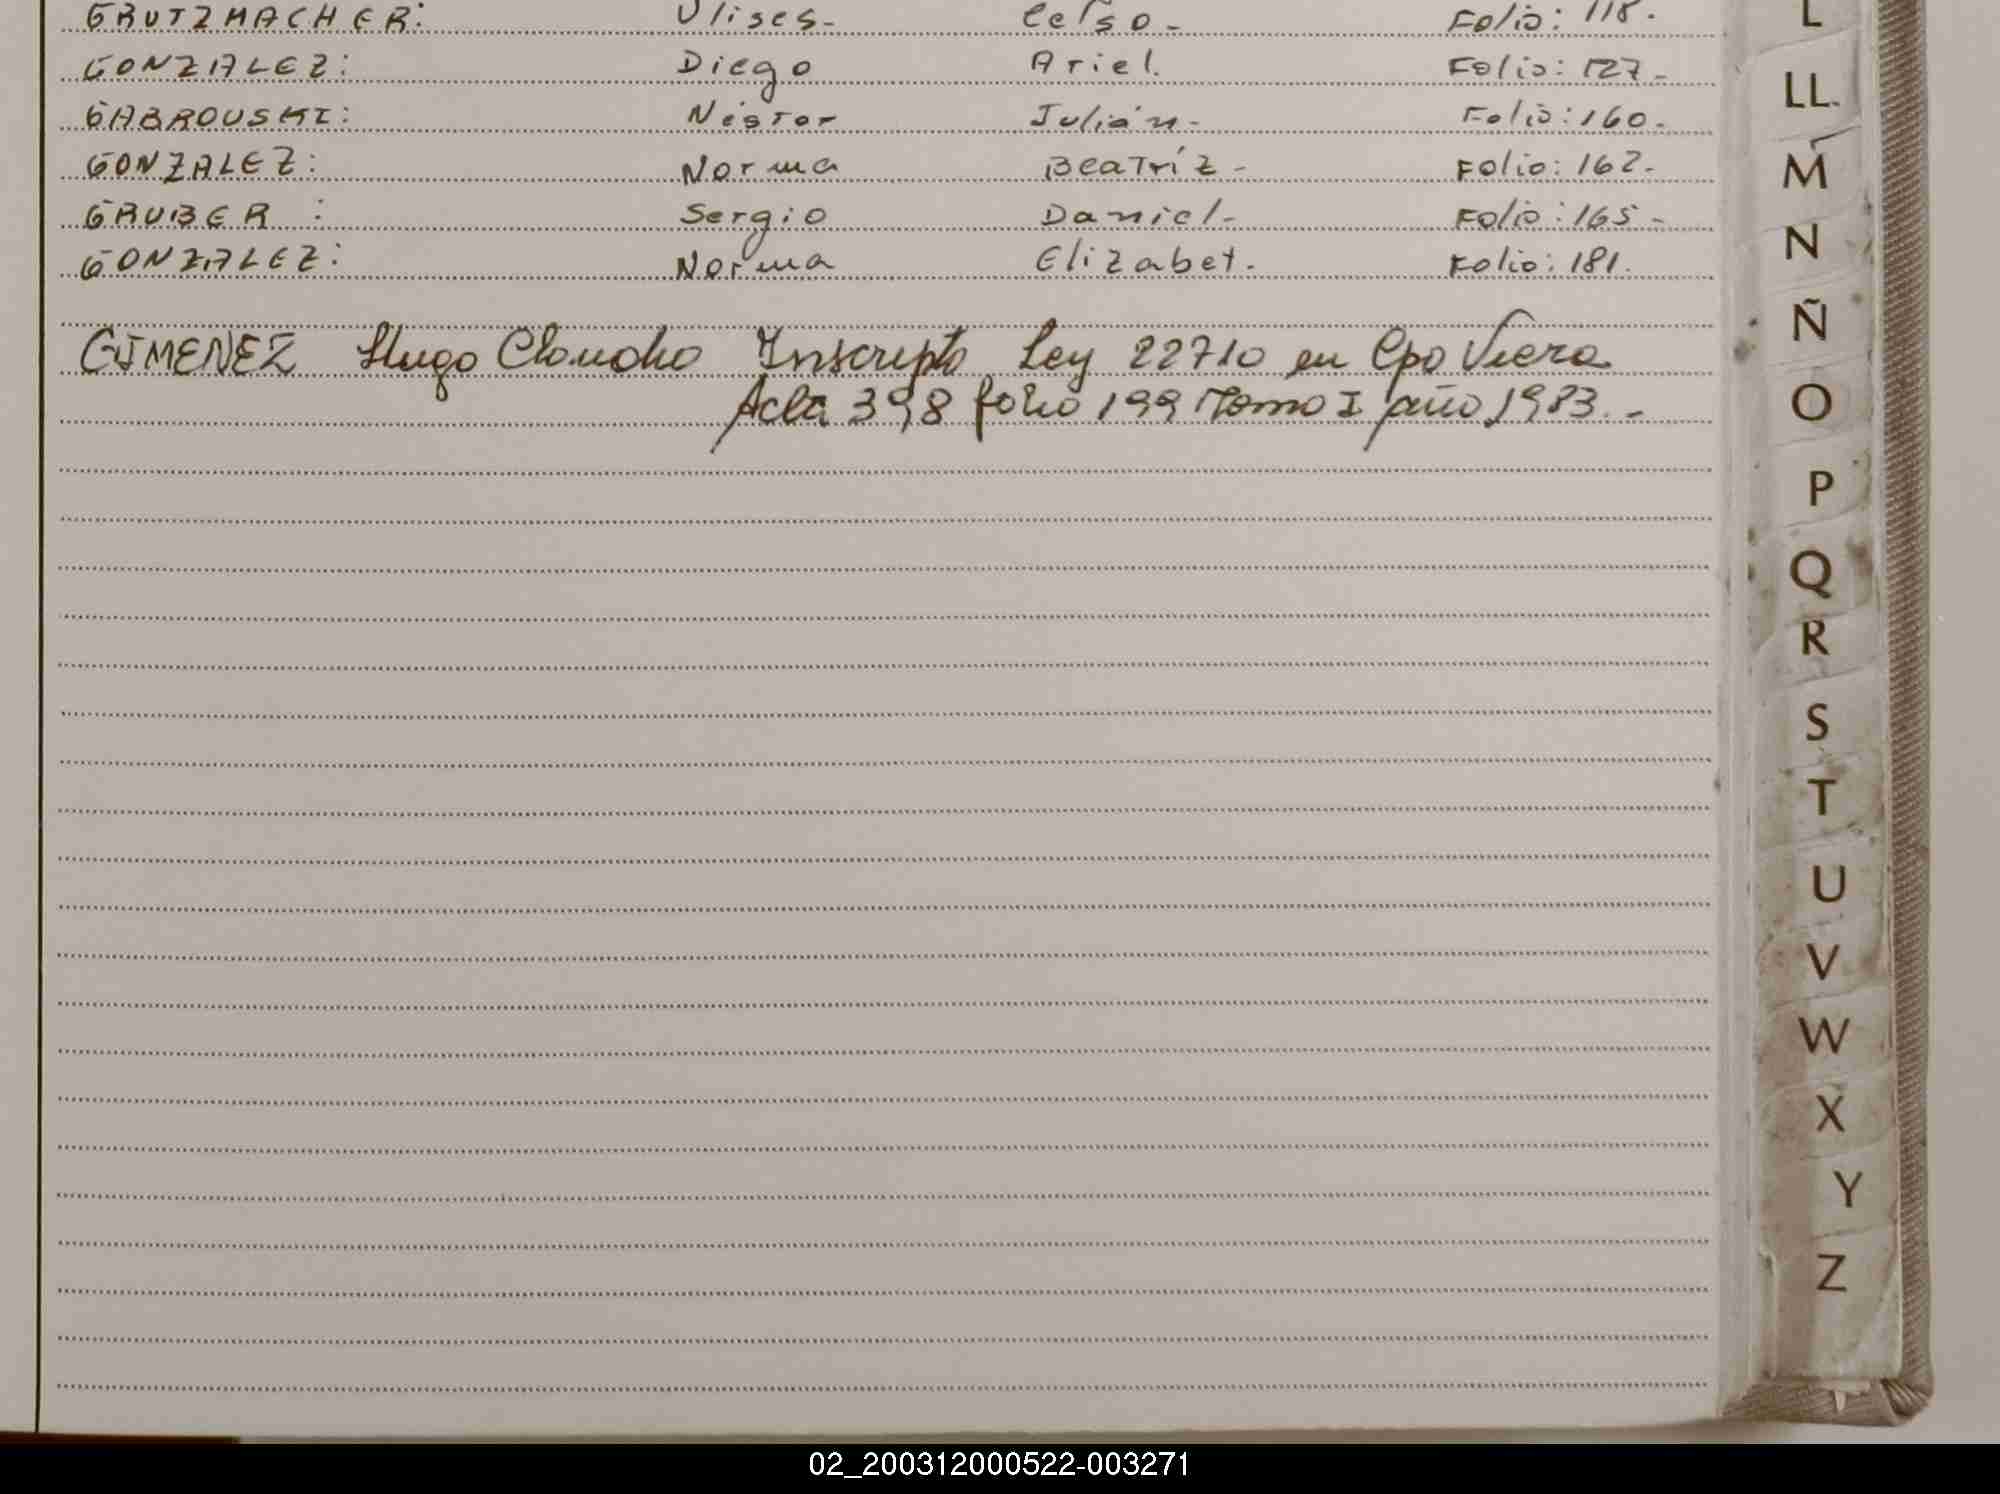 GRUTZMACHER: Ulises- Celso- Folio: 118.
GONZALEZ: Diego Ariel. Folio: 127-
GABROUSKI: Néstor Julián- Folio: 160-
GONZALEZ: Norma Beatríz- Folio: 162-
GRUBER : Sergio Daniel- Folio: 165-
GONZALEZ: Norma Elizabet. Folio: 181.
GIMENEZ Hugo Claudio Inscripto Ley 22710 en Cpo Viera
Acta 398 folio 199 Tomo I año 1983.-
L
LL
M
N
Ñ
O
P
Q
R
S
T
U
V
W
X
Y
Z
02_200312000522-003271